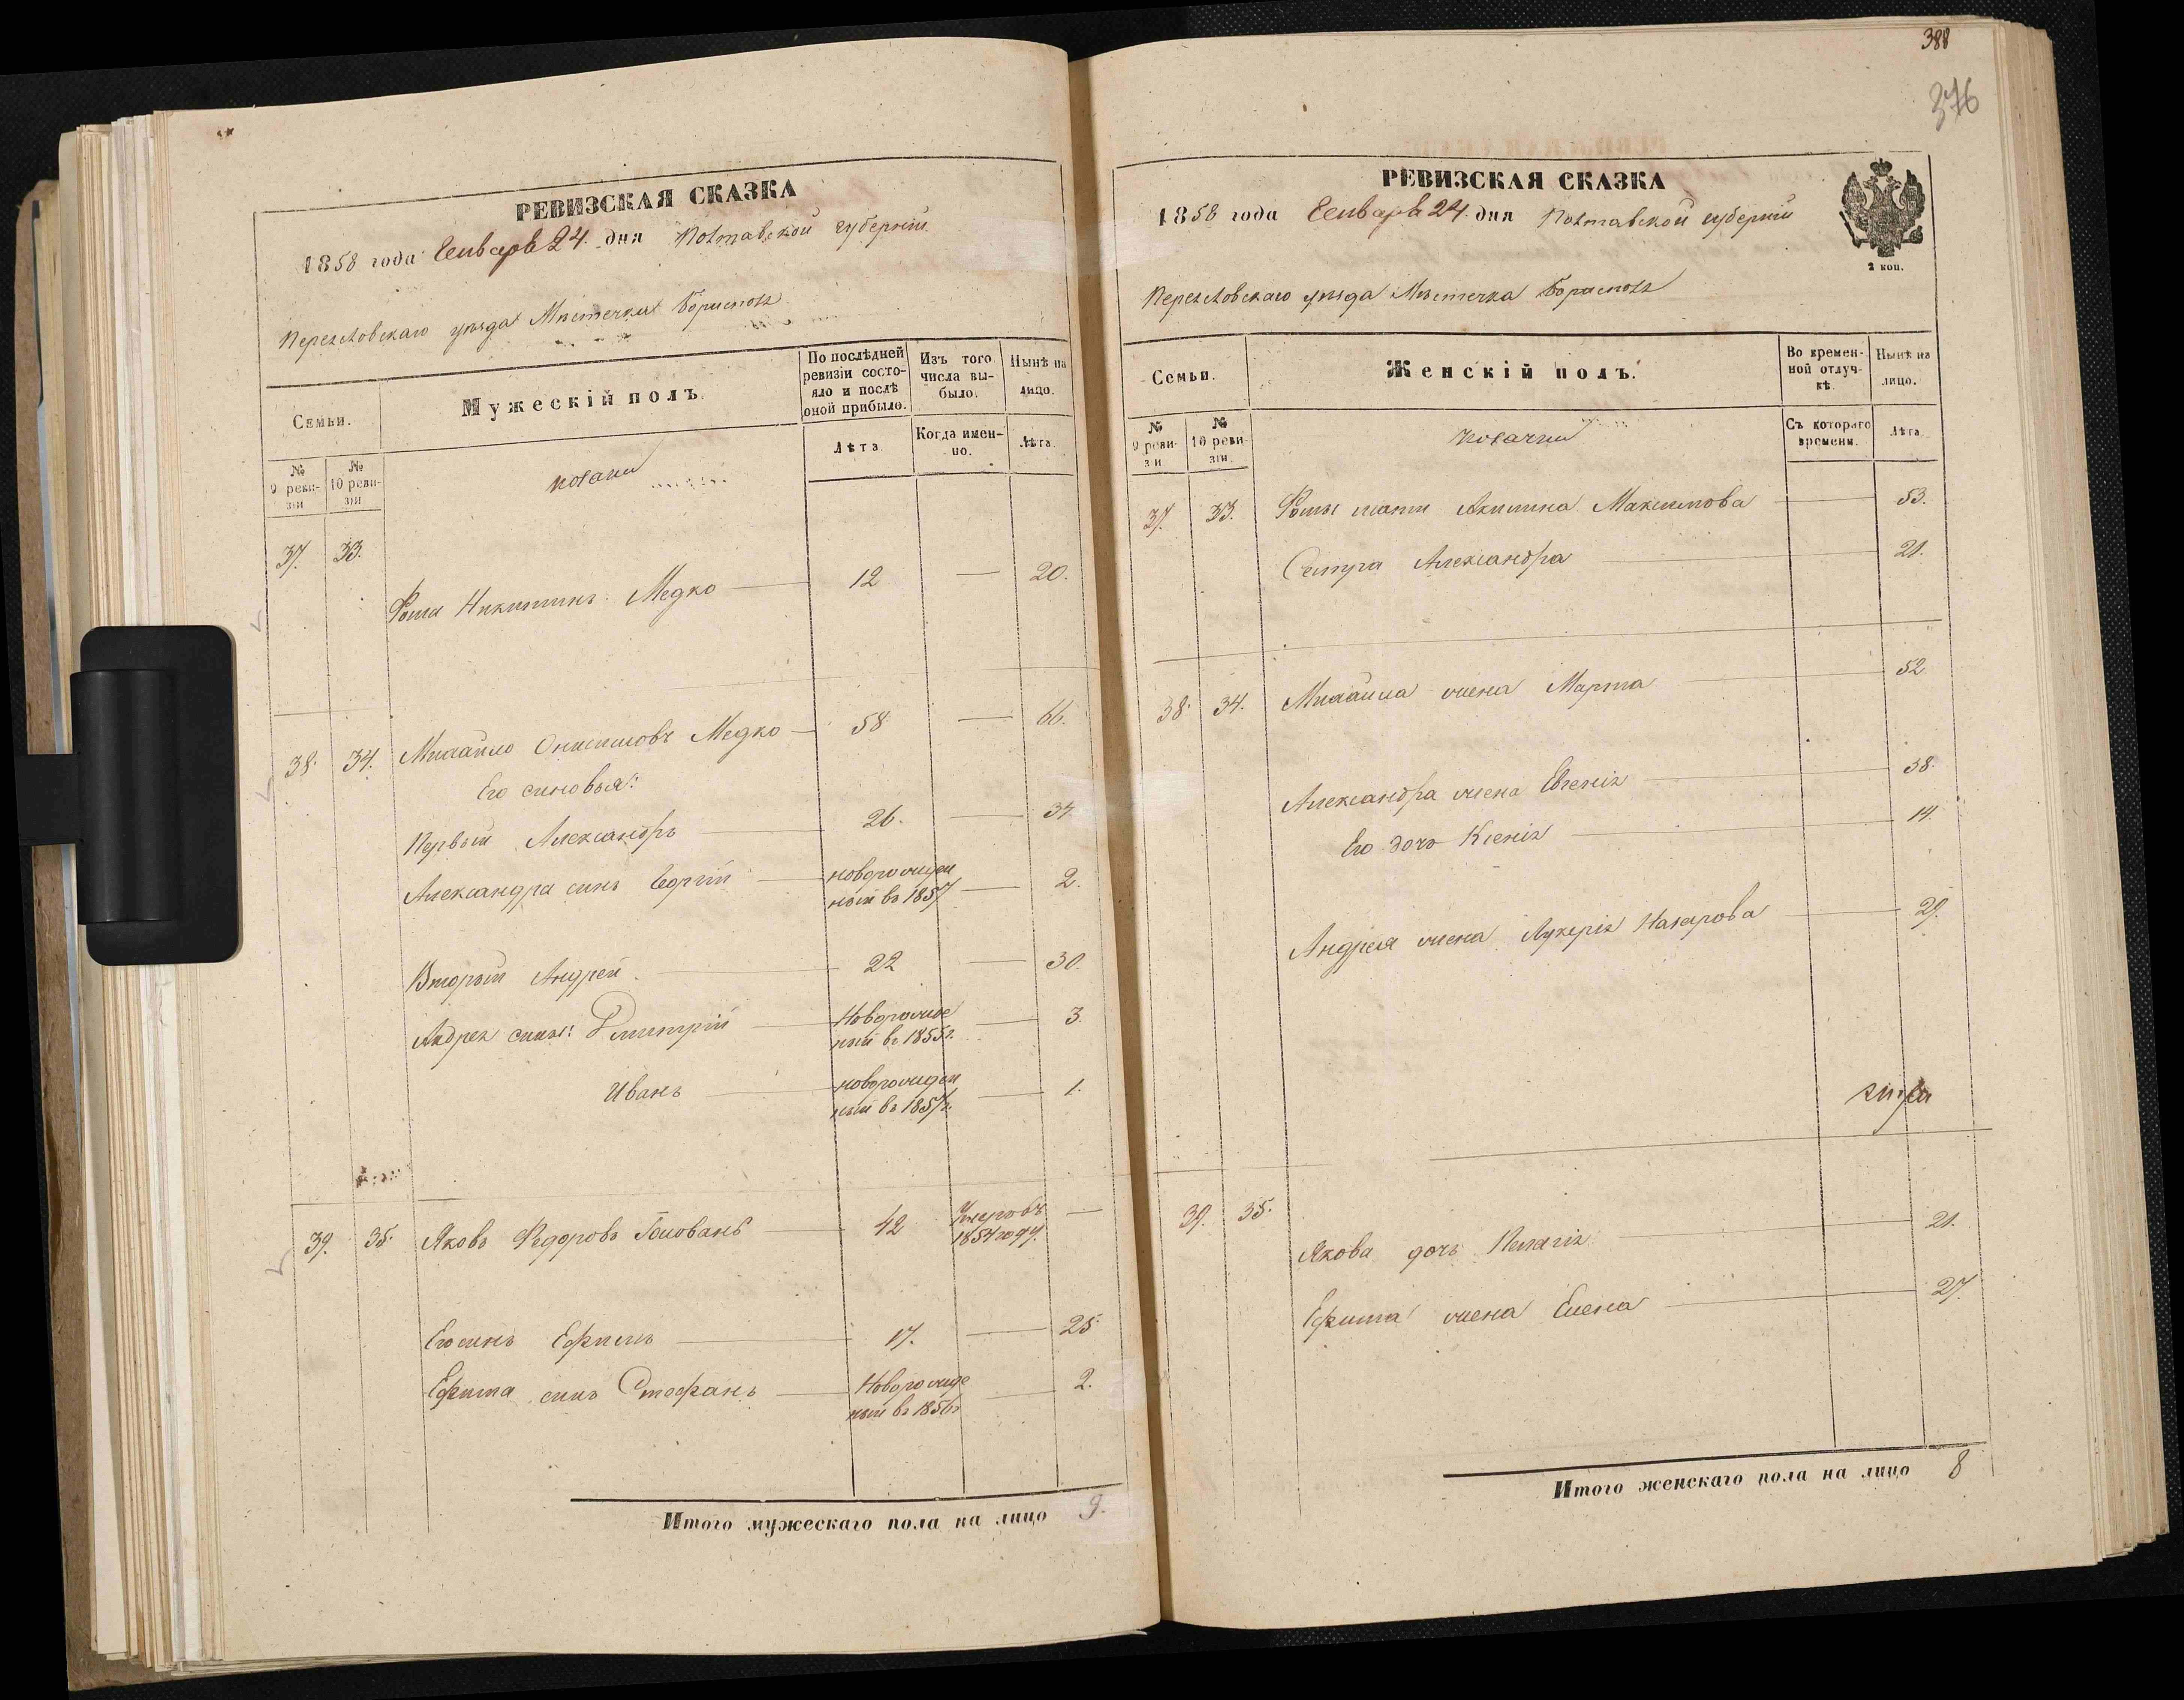 РЕВИЗСКАЯ СКАЗКА
1858 года Генваря 24. дня Полтавской губерніи
Переяловскаго уѣзда Мѣстечка Борисполя
Семьи.
Мужескій полъ.
По послѣдней ревизіи состояло и послѣ оной прибыло.
Изъ того числа выбыло.
Нынѣ на лицо.
№ 9 ревизіи
№ 10 ревизіи
козаки
Лѣта.
Когда именно.
Лѣта.
37. 33. Фома Никитинъ Медко 12 — 20.
38. 34. Михайло Онисимовъ Медко 58 — 66.
Его сыновья:
Первый Александръ 26. — 34
Александра сынъ Георгій новорожденный въ 1857 — 2.
Вторый Андрей 22 — 30.
Андрея сыны: Дмитрій Новорожденый въ 1855г. — 3.
Иванъ новорожденный въ 1857г. — 1.
39. 35. Яковъ Федоровъ Голованъ 42 Умеръ въ 1854 году. —
Его сынъ Ефимъ 17. — 25
Ефима сынъ Стефанъ Новорожденый въ 1856г — 2.
Итого мужескаго пола на лицо 9.
388
376
РЕВИЗСКАЯ СКАЗКА
1858 года Генваря 24. дня Полтавской губерніи
2 коп.
Переяловскаго уѣзда Мѣстечка Борисполя
Семьи.
Женскій полъ.
Во временной отлучкѣ.
Нынѣ на лицо.
№ 9 ревизіи
№ 10 ревизіи
козачки
Съ котораго времени.
Лѣта.
37. 33. Фомы мати Акилина Максимова 53.
Сестра Александра 21.
38. 34. Михайла жена Марта 52
Александра жена Евгенія 38.
Его дочь Ксенія 14.
Андрея жена Лукерія Назарова 29.
39. 35.
Якова дочь Пелагія 21.
Ефима жена Елена 27.
Итого женскаго пола на лицо 8